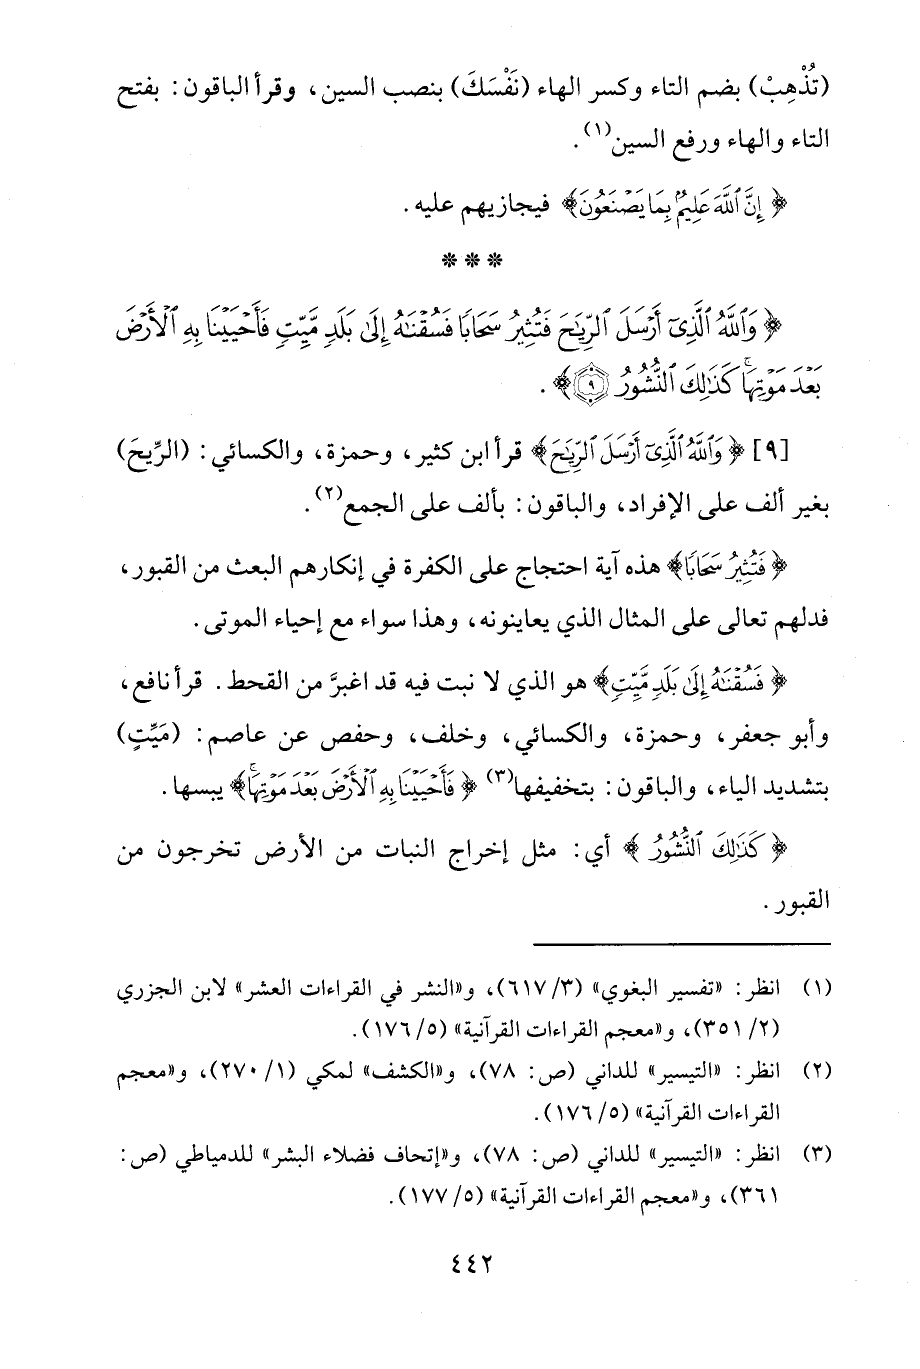 (تُذْهِبْ) بضم التاء وكسر الهاء (نَفْسَكَ) بنصب السين، وقرأ الباقون: بفتح
التاء والهاء ورفع السين(١).
﴿إِنَّ ٱللَّهَ عَلِيمٌۢ بِمَا يَصْنَعُونَ﴾ فيجازيهم عليه.
***
﴿وَٱللَّهُ ٱلَّذِىٓ أَرْسَلَ ٱلرِّيَـٰحَ فَتُثِيرُ سَحَابًا فَسُقْنَـٰهُ إِلَىٰ بَلَدٍ مَّيِّتٍ فَأَحْيَيْنَا بِهِ ٱلْأَرْضَ
بَعْدَ مَوْتِهَا ۚ كَذَٰلِكَ ٱلنُّشُورُ ٩﴾.
[٩] ﴿وَٱللَّهُ ٱلَّذِىٓ أَرْسَلَ ٱلرِّيَـٰحَ﴾ قرأ ابن كثير، وحمزة، والكسائي: (الرِّيحَ)
بغير ألف على الإفراد، والباقون: بألف على الجمع(٢).
﴿فَتُثِيرُ سَحَابًا﴾ هذه آية احتجاج على الكفرة في إنكارهم البعث من القبور،
فدلهم تعالى على المثال الذي يعاينونه، وهذا سواء مع إحياء الموتى.
﴿فَسُقْنَـٰهُ إِلَىٰ بَلَدٍ مَّيِّتٍ﴾ هو الذي لا نبت فيه قد اغبرَّ من القحط. قرأ نافع،
وأبو جعفر، وحمزة، والكسائي، وخلف، وحفص عن عاصم: (مَيِّتٍ)
بتشديد الياء، والباقون: بتخفيفها(٣) ﴿فَأَحْيَيْنَا بِهِ ٱلْأَرْضَ بَعْدَ مَوْتِهَا ۚ﴾ يبسها.
﴿كَذَٰلِكَ ٱلنُّشُورُ﴾ أي: مثل إخراج النبات من الأرض تخرجون من
القبور.
(١) انظر: «تفسير البغوي» (٣/ ٦١٧)، و«النشر في القراءات العشر» لابن الجزري
(٢/ ٣٥١)، و«معجم القراءات القرآنية» (٥/ ١٧٦).
(٢) انظر: «التيسير» للداني (ص: ٧٨)، و«الكشف» لمكي (١/ ٢٧٠)، و«معجم
القراءات القرآنية» (٥/ ١٧٦).
(٣) انظر: «التيسير» للداني (ص: ٧٨)، و«إتحاف فضلاء البشر» للدمياطي (ص:
٣٦١)، و«معجم القراءات القرآنية» (٥/ ١٧٧).
٤٤٢